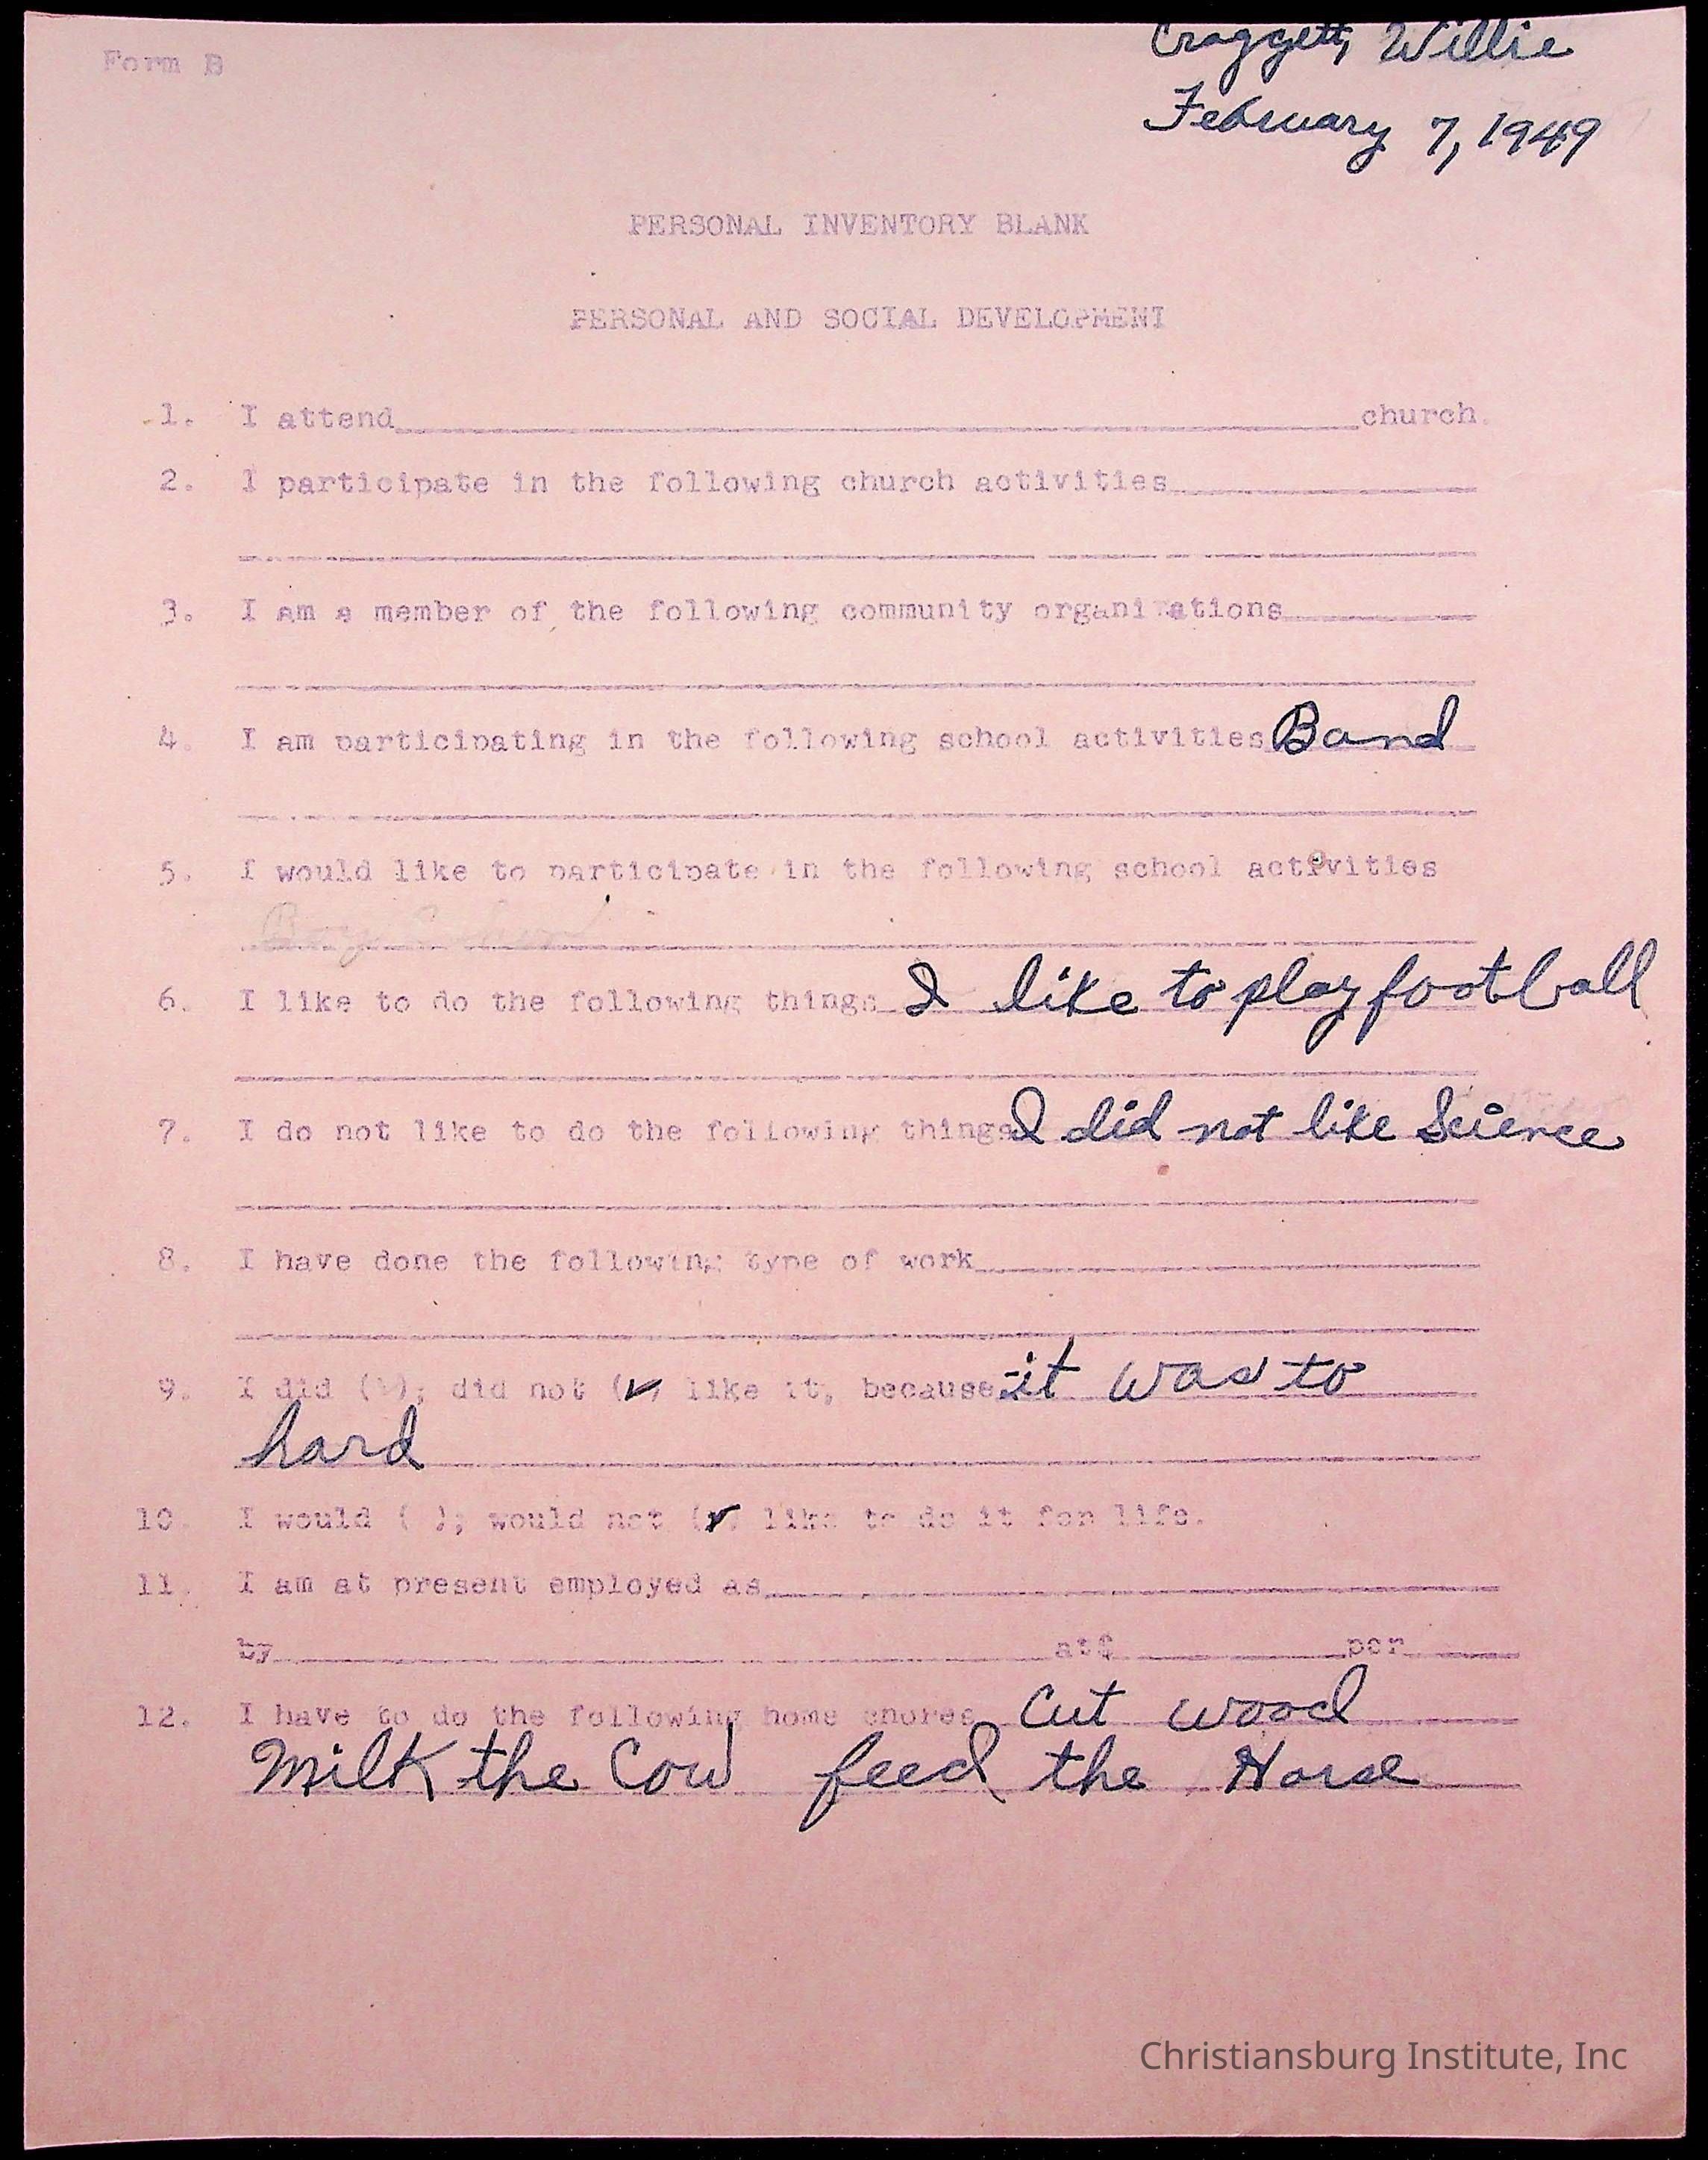 Form B
Craggett, Willie
February 7, 1949
PERSONAL INVENTORY BLANK
PERSONAL AND SOCIAL DEVELOPMENT
1. I attend church.
2. I participate in the following church activities
3. I am a member of the following community organizations
4. I am participating in the following school activities Band
5. I would like to participate in the following school activities
6. I like to do the following things I like to play football
7. I do not like to do the following things I did not like Science
8. I have done the following type of work
9. I did ( ); did not (✓) like it, because it was to
hard
10. I would ( ); would not (✓) like to do it for life.
11. I am at present employed as
by at $ per
12. I have to do the following home chores Cut wood
Milk the Cow feed the Horse
Christiansburg Institute, Inc